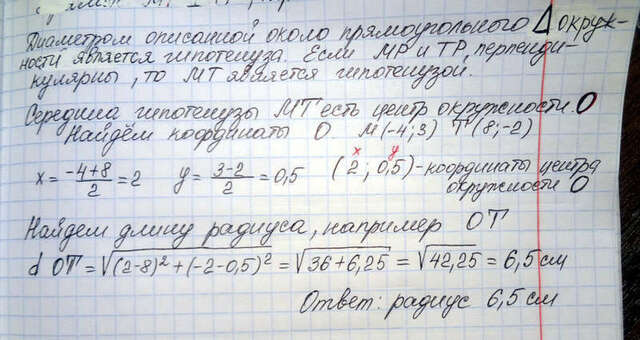 Диаметром описанной около прямоугольного Δ окруж-
ности является гипотенуза. Если MP и TP, перпенди-
кулярны, то MT является гипотенузой.
Середина гипотенузы MT есть центр окружности. O
Найдём координаты O. M(-4;3) T(8;-2)
x = (-4+8)/2 = 2 y = (3-2)/2 = 0,5 (2; 0,5) - координаты центра
x y
окружности O
Найдем длину радиуса, например OT
d OT = √((2-8)² + (-2-0,5)²) = √(36+6,25) = √(42,25) = 6,5 см
Ответ: радиус 6,5 см